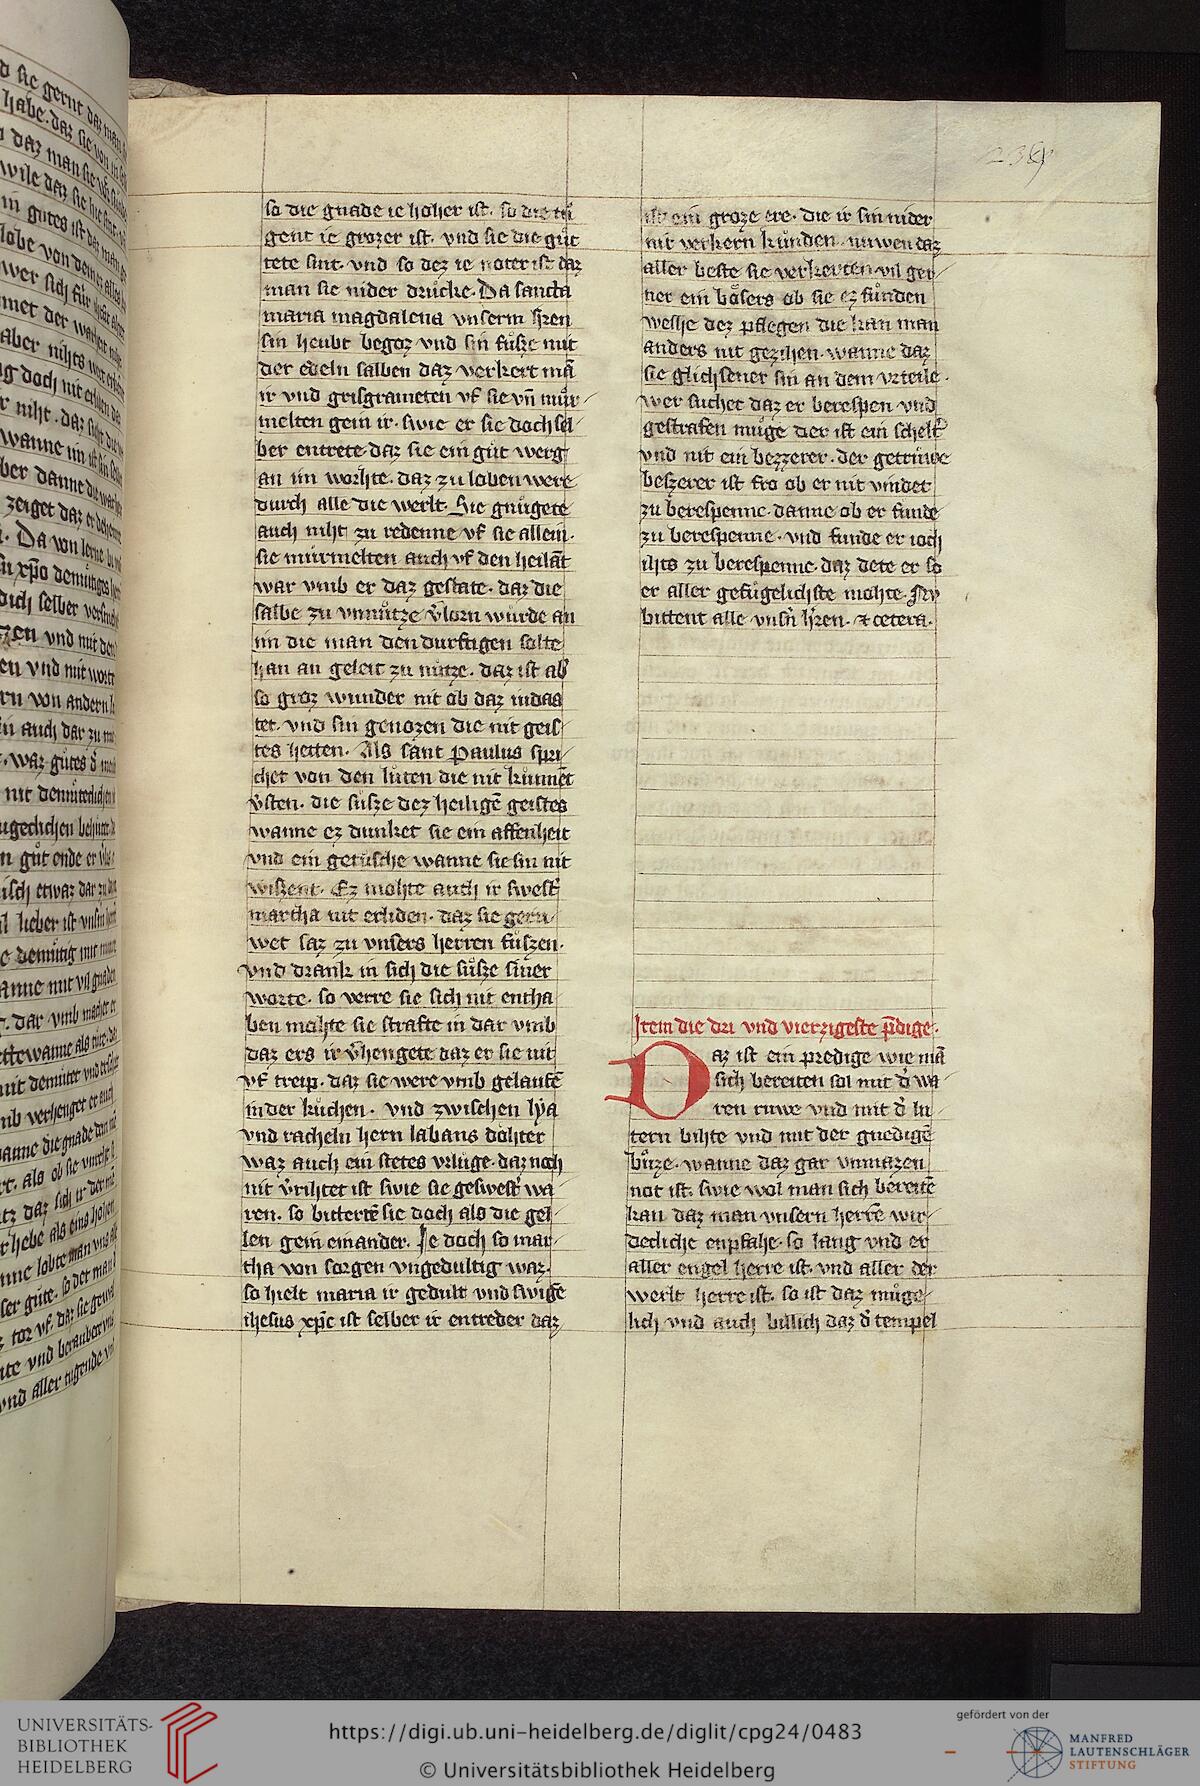 239
so die gnade ie hoher ist. so die tu
gent ie grozer ist. vnd sie die gůt
tete sint. vnd so dez ie noter ist daz
man sie nider drůcke. Da sancta
maria magdalena vnserm hren
sin heubt begoz vnd sin fůsze mit
der edeln salben daz verkert mā
ir vnd grisgrameten vf sie vn̄ mur
melten gein ir. swie er sie doch sel
ber entrete daz sie ein gůt werg
an im worhte. daz zu loben were
durch alle die werlt. Sie gnůgete
auch niht zu redenne vf sie allein.
sie murmelten auch vf den heilāt
war vmb er daz gestate. daz die
salbe zu vnnůtze v̄lorn wůrde an
im die man den durftigen solte
han an geleit zu nůtze. daz ist ab̄
so groz wunder nit ob daz iudas
tet. vnd sin genozen die nit geis
tes hetten. Als sant Paulus spri
chet von den lůten die nit kůnnēt
v̄sten. die sůsze dez heiligē geistes
wanne ez dunket sie ein affenheit
vnd ein getůsche wanne sie sin nit
wiszent. Ez mohte auch ir swest̄
martha nit erliden. daz sie geru
wet saz zu vnsers herren fůszen.
vnd drank in sich die sůsze siner
worte. so verre sie sich nit entha
ben mohte sie strafte in dar vmb
daz ers ir v̄hengete daz er sie nit
vf treip. daz sie were vmb gelaufē
in der kůchen. vnd zwischen lya
vnd racheln hern labans dohter
waz auch ein stetes vrluge. daz noch
nit v̄rihtet ist swie sie geswest̄ wa
ren. so bittertē sie doch als die gel
len gein einander. Je doch so mar
tha von sorgen vngedultig waz.
so hielt maria ir gedult vnd swigē
ihesus xp̄c ist selber ir entreder daz
ist ein groze ere. die ir sin nider
nit verkern kůnden. nuwen daz
aller beste sie verkerten vil ger
ner ein bősers ob sie ez fůnden
welhe dez pflegen die kan man
anders nit gezihen. wanne daz
sie glichsener sin an dem vrteile.
wer suchet daz er berespen vnd
gestrafen můge der ist ein schelt̄
vnd nit ein bezzerer. der getrůwe
beszerer ist fro ob er nit vindet
zu berespenne. danne ob er funde
zu berespenne. vnd funde er ioch
ihts zu berespenne. daz dete er so
er aller gefůgelichste mohte. Nv
bittent alle vnsn̄ h̄ren. & cetera.
Item die dri vnd vierzigeste p̄dige.
Daz ist ein predige wie mā
sich bereiten sol mit d̄ wa
ren ruwe vnd mit d̄ lu
tern bihte vnd mit der gnedigē
bůze. wanne daz gar vnmazen
not ist. swie wol man sich bereitē
kan daz man vnsern herrē wir
decliche enpfahe. so lang vnd er
aller engel herre ist. vnd aller der
werlt herre ist. so ist daz můge
lich vnd auch billich daz d̄ tempel
UNIVERSITÄTS-
BIBLIOTHEK
HEIDELBERG
https://digi.ub.uni-heidelberg.de/diglit/cpg24/0483
© Universitätsbibliothek Heidelberg
gefördert von der
MANFRED
LAUTENSCHLÄGER
STIFTUNG